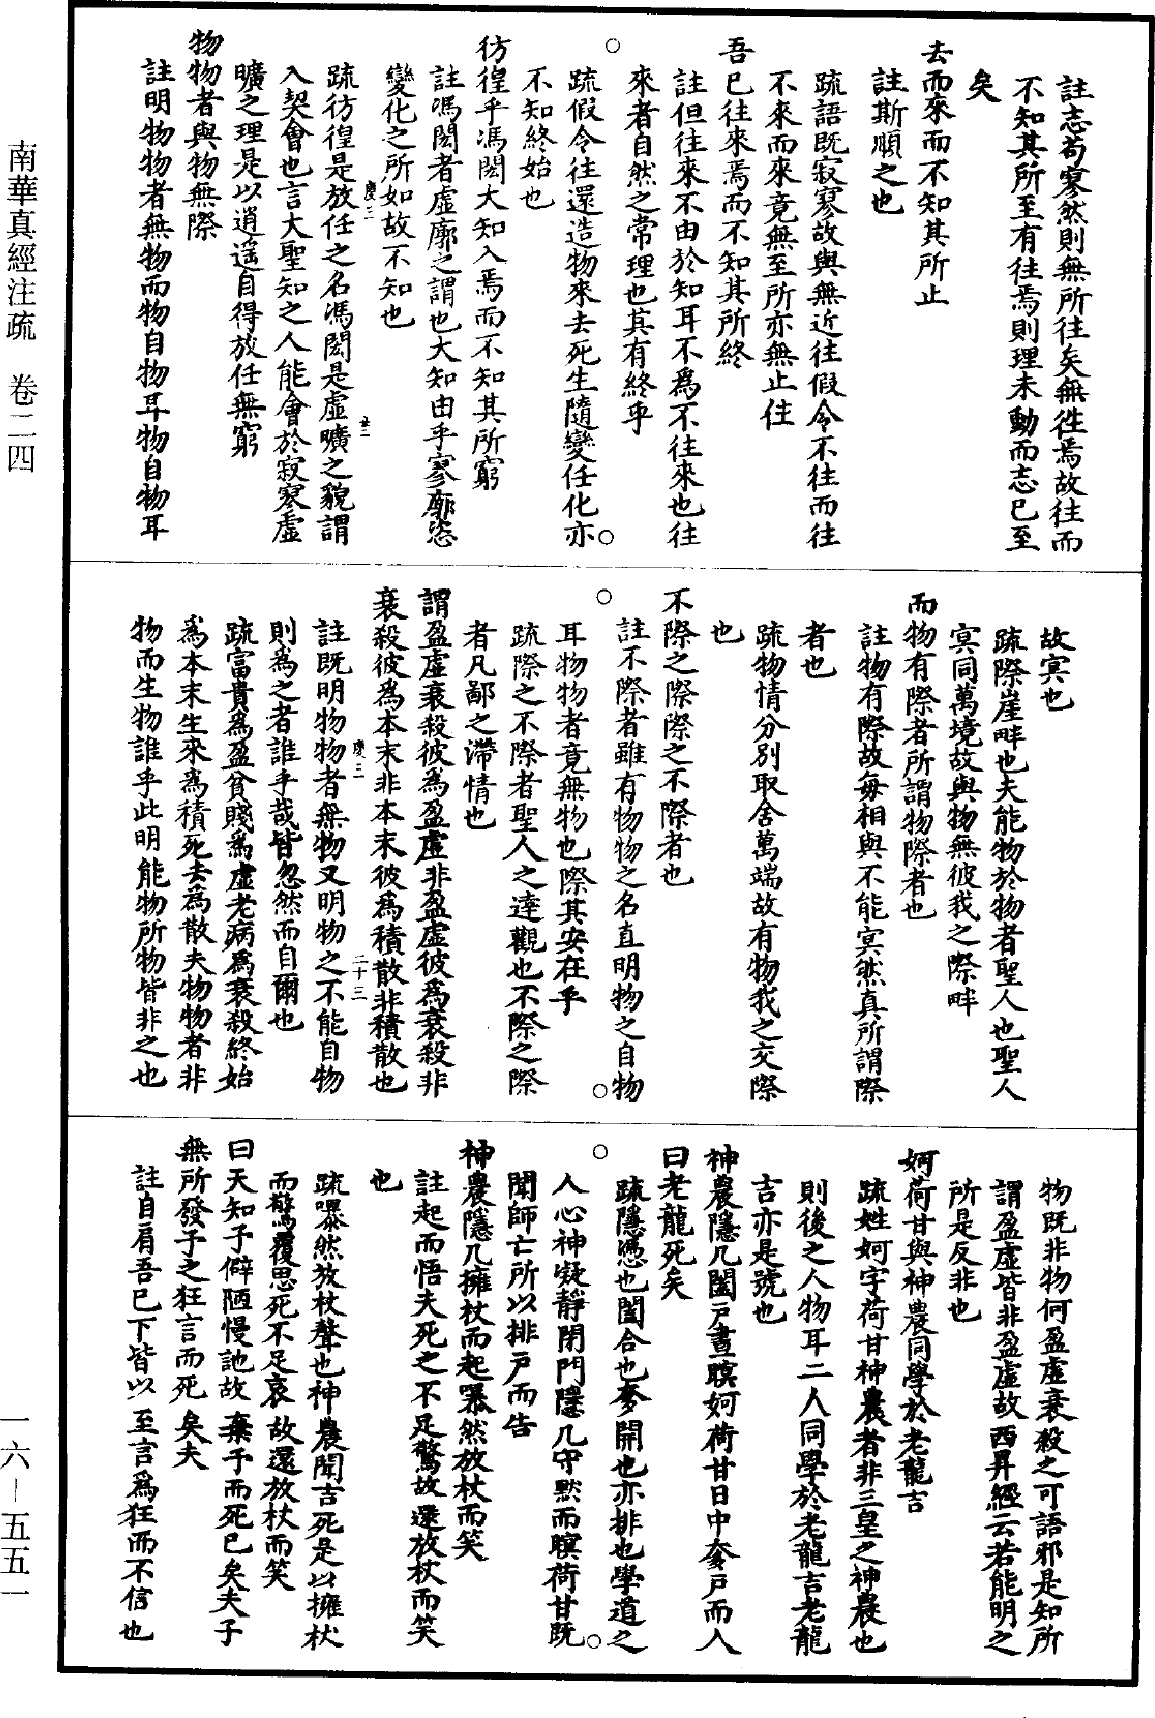 南華真經注疏　卷二四
註志苟寥然則無所往矣無徃焉故往而
不知其所至有往焉則理未動而志已至
矣
去而來而不知其所止
註斯順之也
疏語既寂寥故與無近往假令不往而往
不來而來竟無至所亦無止住
吾已往來焉而不知其所終
註但往來不由於知耳不為不往來也往
來者自然之常理也其有終乎
疏假令往還造物來去死生隨變任化亦
不知終始也
彷徨乎馮閎大知入焉而不知其所窮
註馮閎者虛廓之謂也大知由乎寥廓恣
變化之所如故不知也
慶三
疏彷徨是放任之名馮閎是虛曠之貌謂
入契會也言大聖知之人能會於寂寥虛
曠之理是以逍遙自得放任無窮
物物者與物無際
註明物物者無物而物自物耳物自物耳
故冥也
疏際崖畔也夫能物於物者聖人也聖人
冥同萬境故與物無彼我之際畔
而物有際者所謂物際者也
註物有際故每相與不能冥然真所謂際
者也
疏物情分別取舍萬端故有物我之交際
也
不際之際際之不際者也
註不際者雖有物物之名直明物之自物
耳物物者竟無物也際其安在乎
疏際之不際者聖人之達觀也不際之際
者凡鄙之滯情也
謂盈虛衰殺彼為盈虛非盈虛彼為衰殺非
衰殺彼為本末非本末彼為積散非積散也
慶三
二十三
註既明物物者無物又明物之不能自物
則為之者誰乎哉皆忽然而自爾也
疏富貴為盈貧賤為虛老病為衰殺終始
為本末生來為積死去為散夫物物者非
物而生物誰乎此明能物所物皆非之也
物既非物何盈虛衰殺之可語邪是知所
謂盈虛皆非盈虛故西昇經云若能明之
所是反非也
妸荷甘與神農同學於老龍吉
疏姓妸字荷甘神農者非三皇之神農也
則後之人物耳二人同學於老龍吉老龍
吉亦是號也
神農隱几闔戶晝瞑妸荷甘日中奓戶而入
曰老龍死矣
疏隱憑也闔合也奓開也亦排也學道之
人心神凝靜閉門隱几守默而瞑荷甘既
聞師亡所以排戶而告
神農隱几擁杖而起曝然放杖而笑
註起而悟夫死之不足驚故還放杖而笑
也
疏曝然放杖聲也神農聞吉死是以擁杖
而驚覆思死不足哀故還放杖而笑
曰天知予僻陋慢訑故棄予而死已矣夫子
無所發予之狂言而死矣夫
註自肩吾已下皆以至言為狂而不信也
一六—五五一